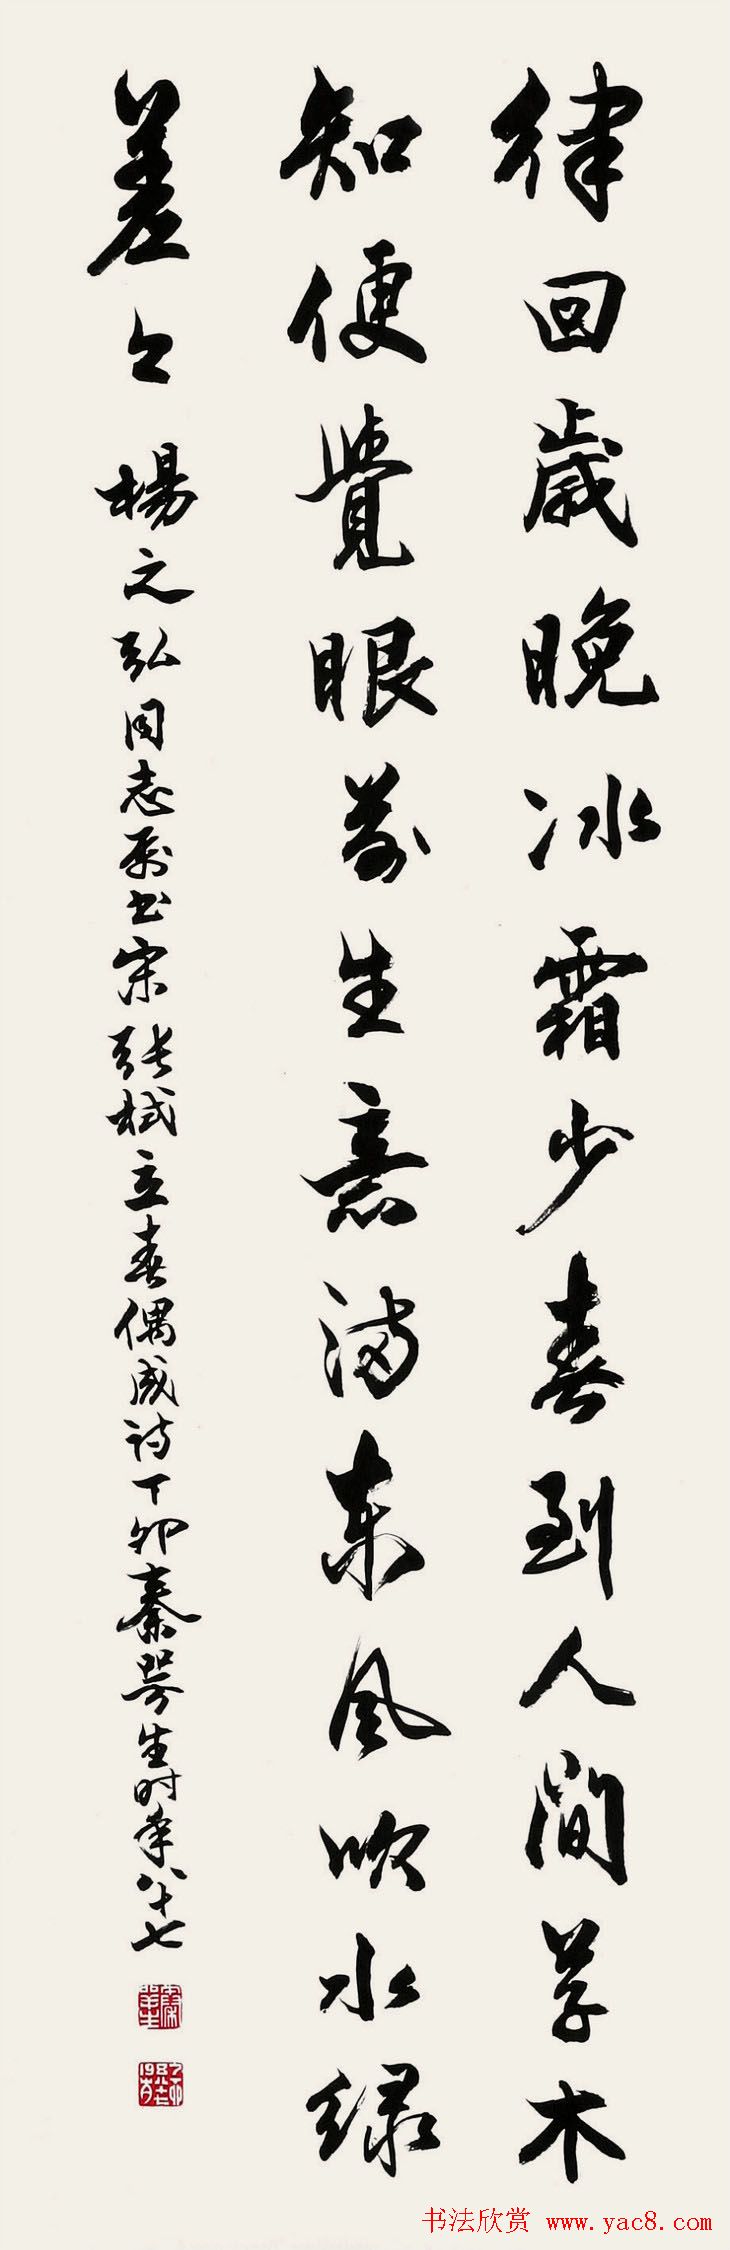 律回歲晚冰霜少春到人間草木
知便覺眼前生意滿东風吹水绿
差々 楊之弘同志属书宋张栻立春偶成诗丁卯秦咢生时年八十七
书法欣赏 www.yac8.com